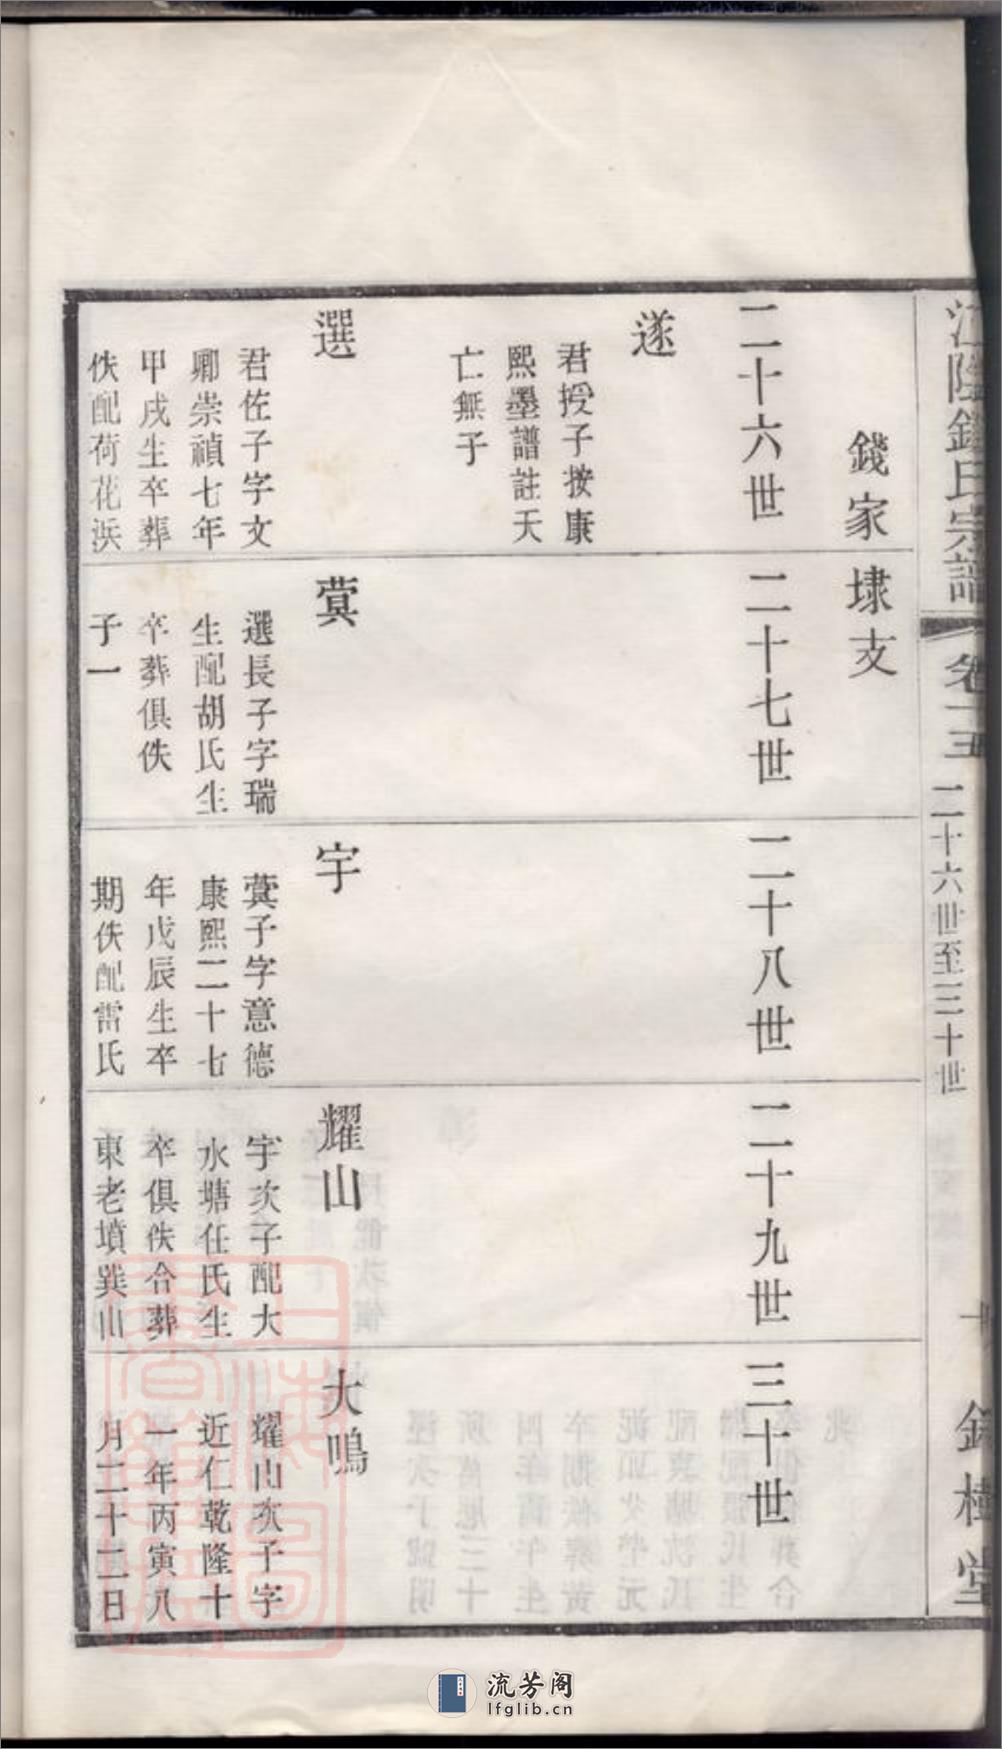 江陰錢氏宗譜
卷十五
二十六世至三十世
錦樹堂
錢家埭支
二十六世
遂
君授子按康
熙墨譜註天
亡無子
選
君佐子字文
卿崇禎七年
甲戌生卒葬
佚配荷花浜
二十七世
蓂
選長子字瑞
生配胡氏生
卒葬俱佚
子一
二十八世
宇
蓂子字意德
康熙二十七
年戊辰生卒
期佚配雷氏
二十九世
耀山
宇次子配大
水塘任氏生
卒俱佚合葬
東老墳巽山
三十世
大鳴
耀山次子字
近仁乾隆十
一年丙寅八
月二十二日
流芳阁
lfglib.cn